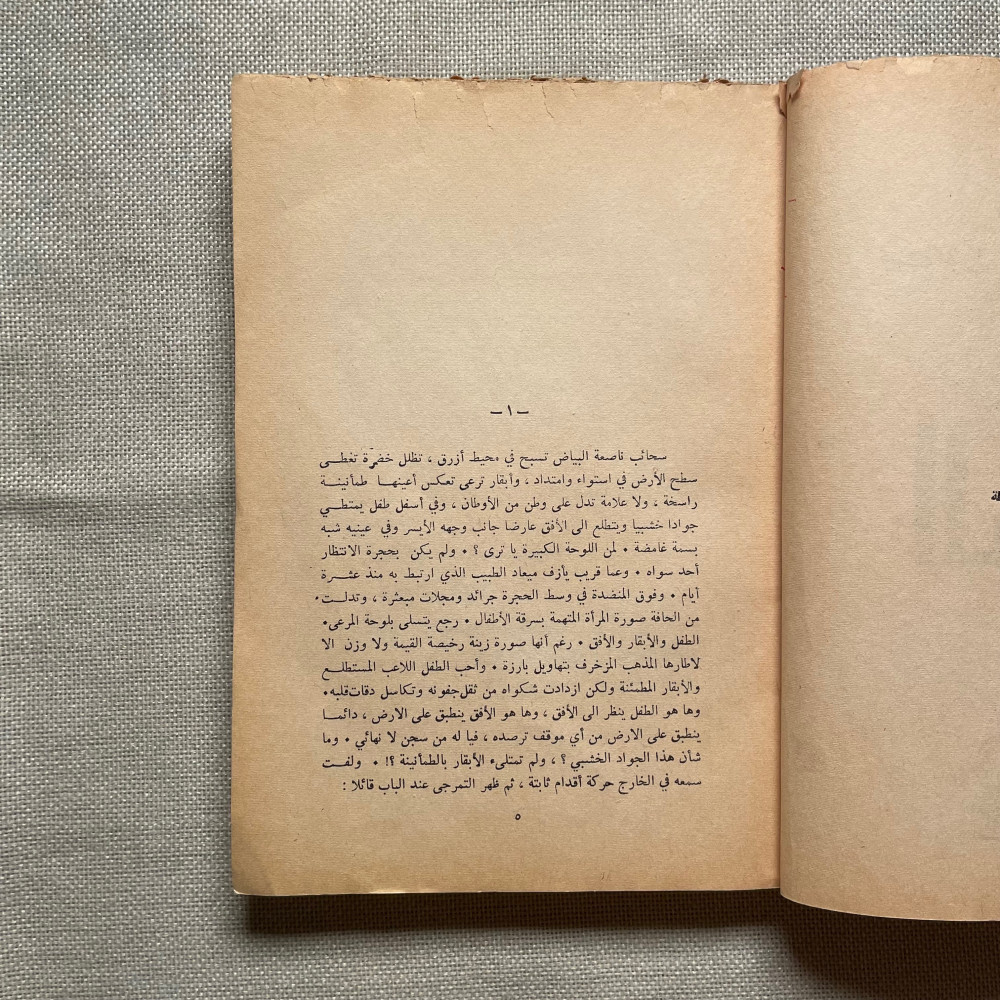 — ١ —
سحائب ناصعة البياض تسبح في محيط أزرق ، تظلل خضرة تغطي
سطح الأرض في استواء وامتداد ، وأبقار ترعى تعكس أعينها طمأنينة
راسخة ، ولا علامة تدل على وطن من الأوطان ، وفي أسفل طفل يمتطي
جوادا خشبيا ويتطلع الى الأفق عارضا جانب وجهه الأيسر وفي عينيه شبه
بسمة غامضة ٠ لمن اللوحة الكبيرة يا ترى ؟ ٠ ولم يكن بحجرة الانتظار
أحد سواه ٠ وعما قريب يأزف ميعاد الطبيب الذي ارتبط به منذ عشرة
أيام ٠ وفوق المنضدة في وسط الحجرة جرائد ومجلات مبعثرة ، وتدلت
من الحافة صورة المرأة المتهمة بسرقة الأطفال ٠ رجع يتسلى بلوحة المرعى ٠
الطفل والأبقار والأفق ٠ رغم أنها صورة زينة رخيصة القيمة ولا وزن الا
لاطارها المذهب المزخرف بتهاويل بارزة ٠ وأحب الطفل اللاعب المستطلع
والأبقار المطمئنة ولكن ازدادت شكواه من ثقل جفونه وتكاسل دقات قلبه ٠
وها هو الطفل ينظر الى الأفق ، وها هو الأفق ينطبق على الارض ، دائما
ينطبق على الارض من أي موقف ترصده ، فيا له من سجن لا نهائي ٠ وما
شأن هذا الجواد الخشبي ؟ ، ولم تمتلىء الأبقار بالطمأنينة ؟! ٠ ولفت
سمعه في الخارج حركة أقدام ثابتة ، ثم ظهر التمرجى عند الباب قائلا :
٥